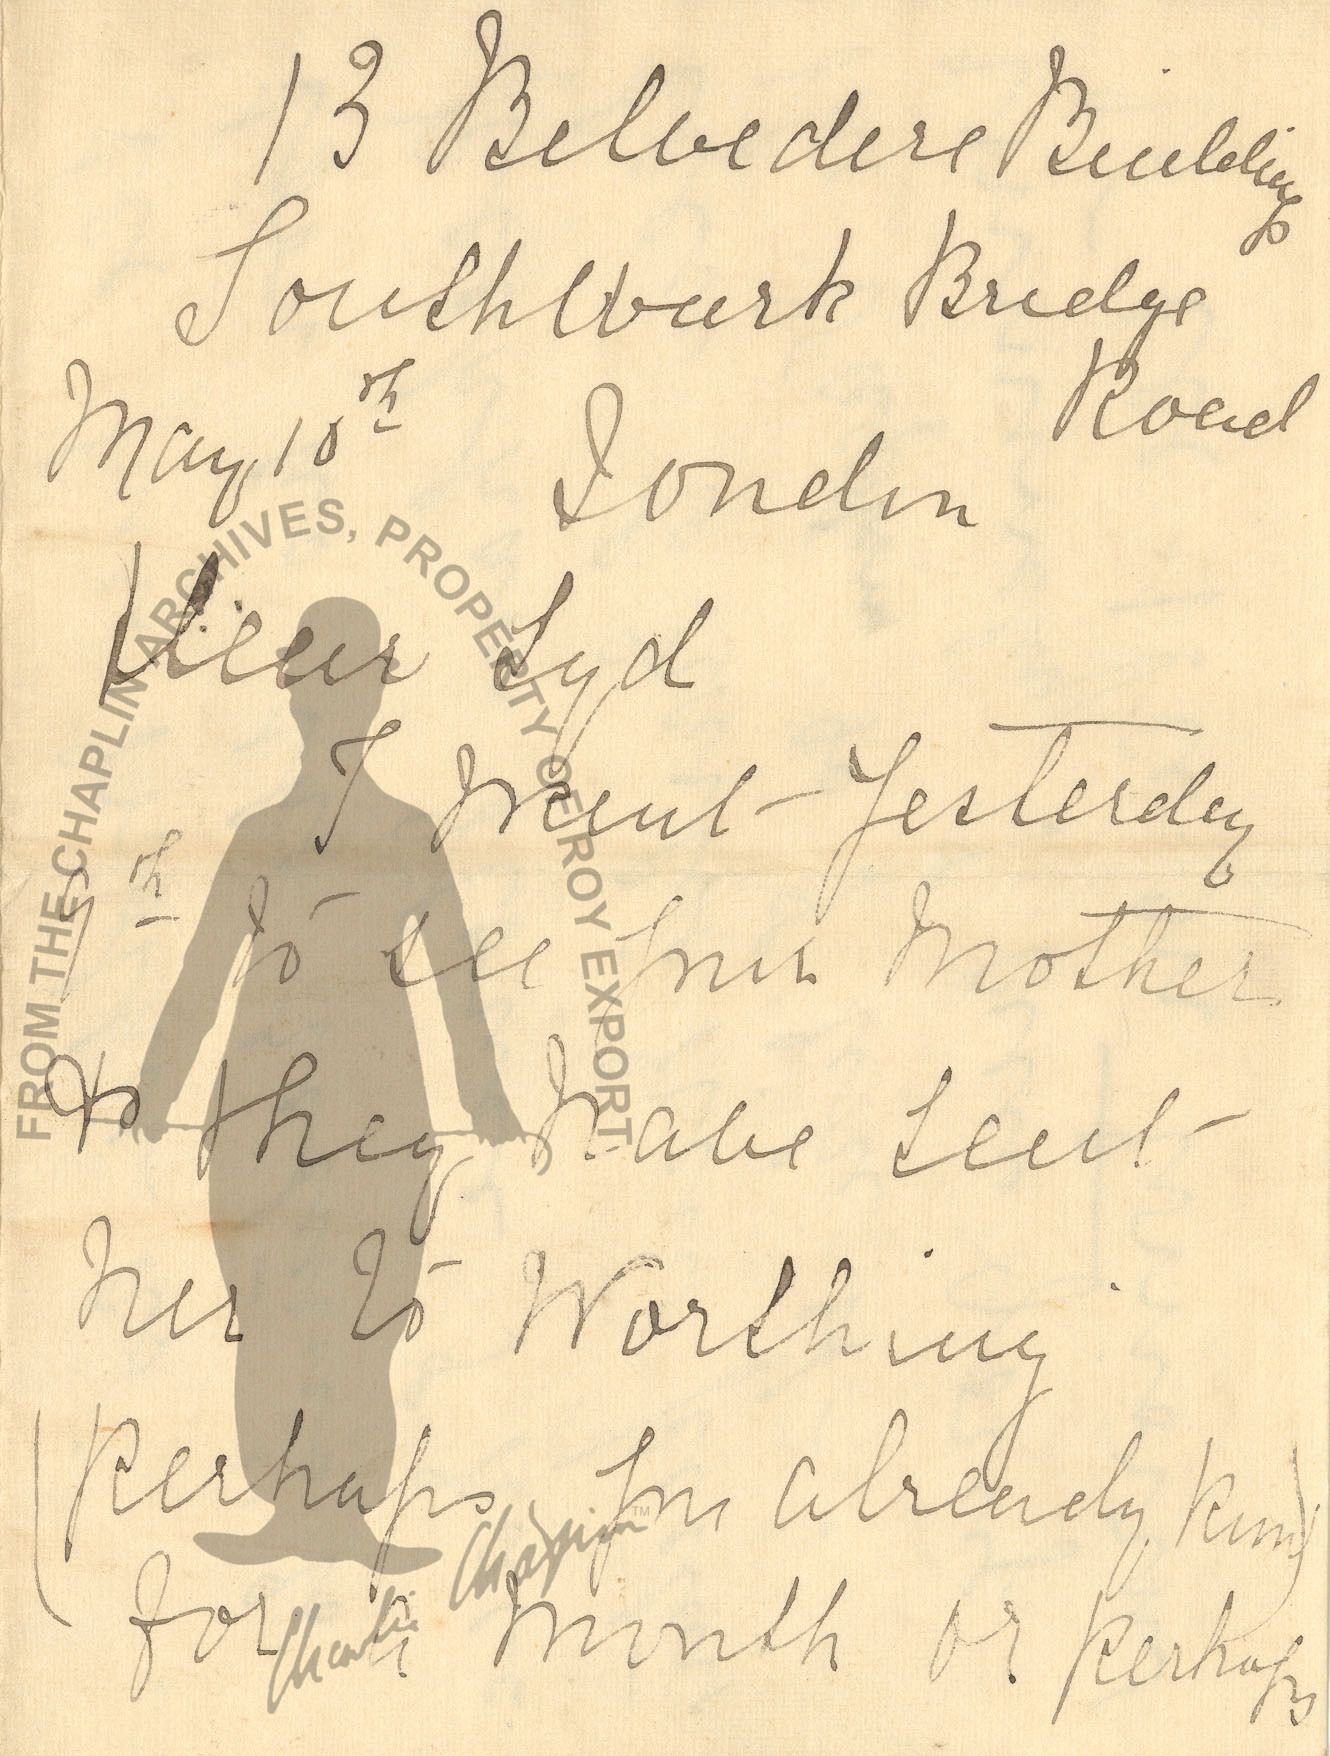 13 Belvedere Buildings
Southwark Bridge
Road
May 10th London
Dear Syd
I went Yesterday
9th to see your Mother
& they have sent
her to Worthing
(Perhaps you already know)
for a month or perhaps
FROM THE CHAPLIN ARCHIVES, PROPERTY OF ROY EXPORT
Charlie Chaplin™